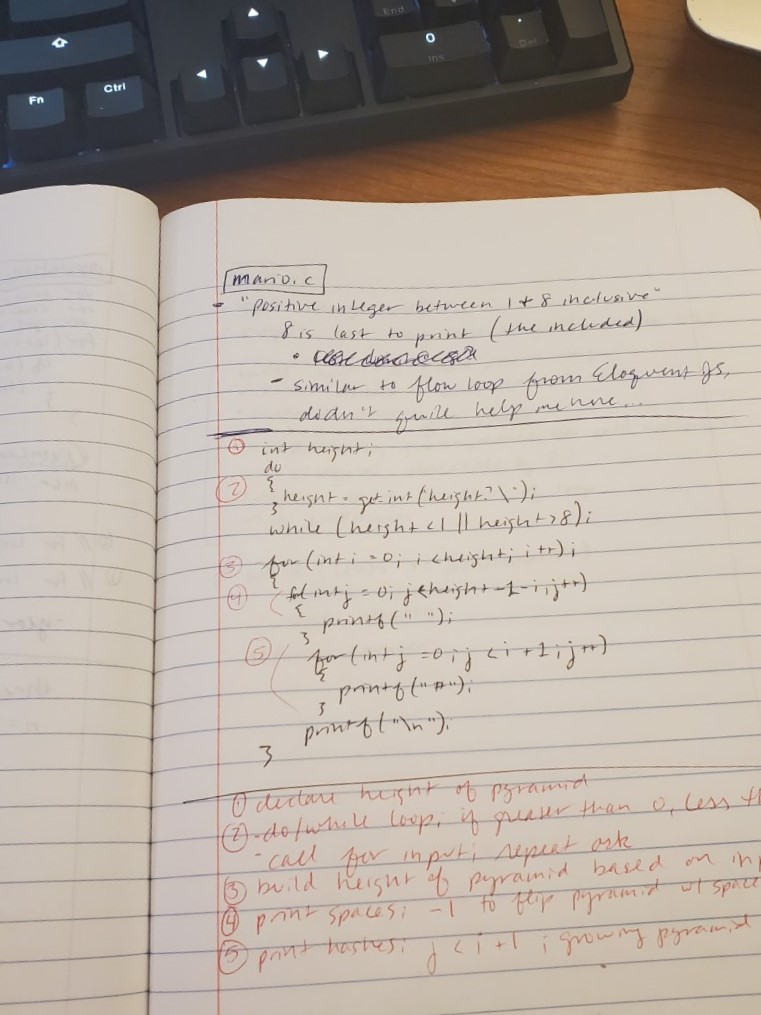 End
0
Ins
.
Del
Fn
Ctrl
mario.c
- "positive integer between 1 & 8 inclusive"
8 is last to print (the included)
•
- similar to flow loop from Eloquent JS,
didn't quite help me here...
① int height;
do
{
② height = get_int(height? \");
}
while (height <1 || height >8);
③ for (int i = 0; i < height; i++);
{
④ for (int j = 0; j < height -1 - i; j++)
{
printf(" ");
}
⑤ for (int j = 0; j < i + 1; j++)
{
printf("#");
}
printf("\n");
}
① declare height of pyramid
② - do/while loop; if greater than 0, less th
- call for input; repeat ask
③ build height of pyramid based on inp
④ print spaces; -1 to flip pyramid w/ space
⑤ print hashes; j < i + 1 ; growing pyramid